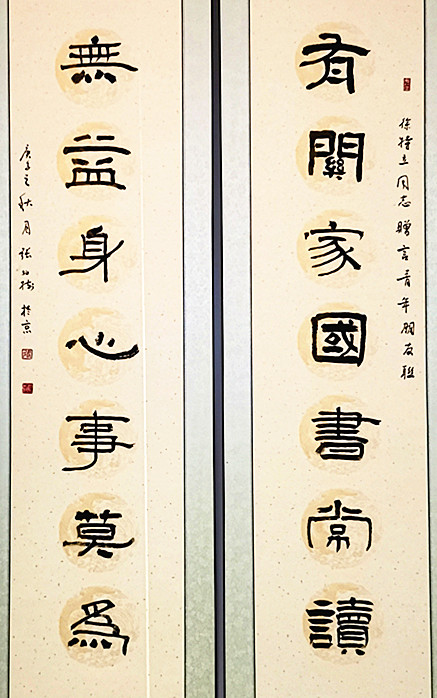 徐特立同志赠言青年朋友联
有關家國書常讀
無益身心事莫為
庚子之秋月張
於京